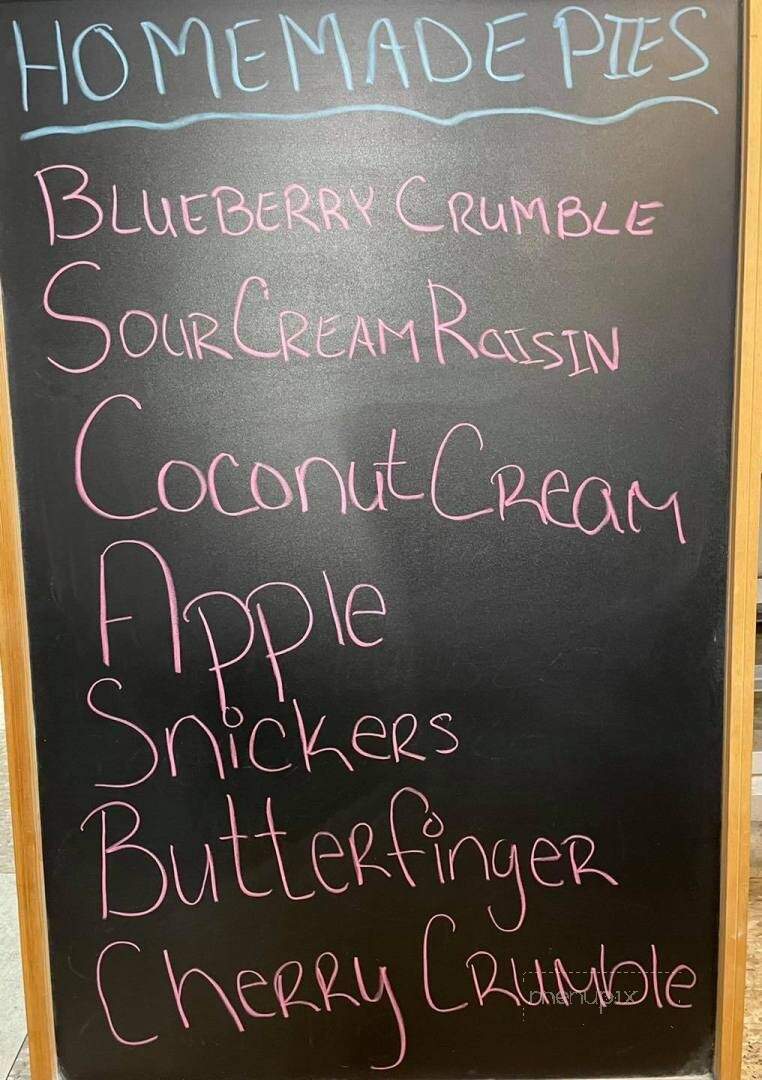 HOMEMADE PIES
BLUEBERRY CRUMBLE
SOUR CREAM RaISIN
Coconut CReam
Apple
SnickeRS
ButteRfingeR
CheRRy CRUMble
menupix